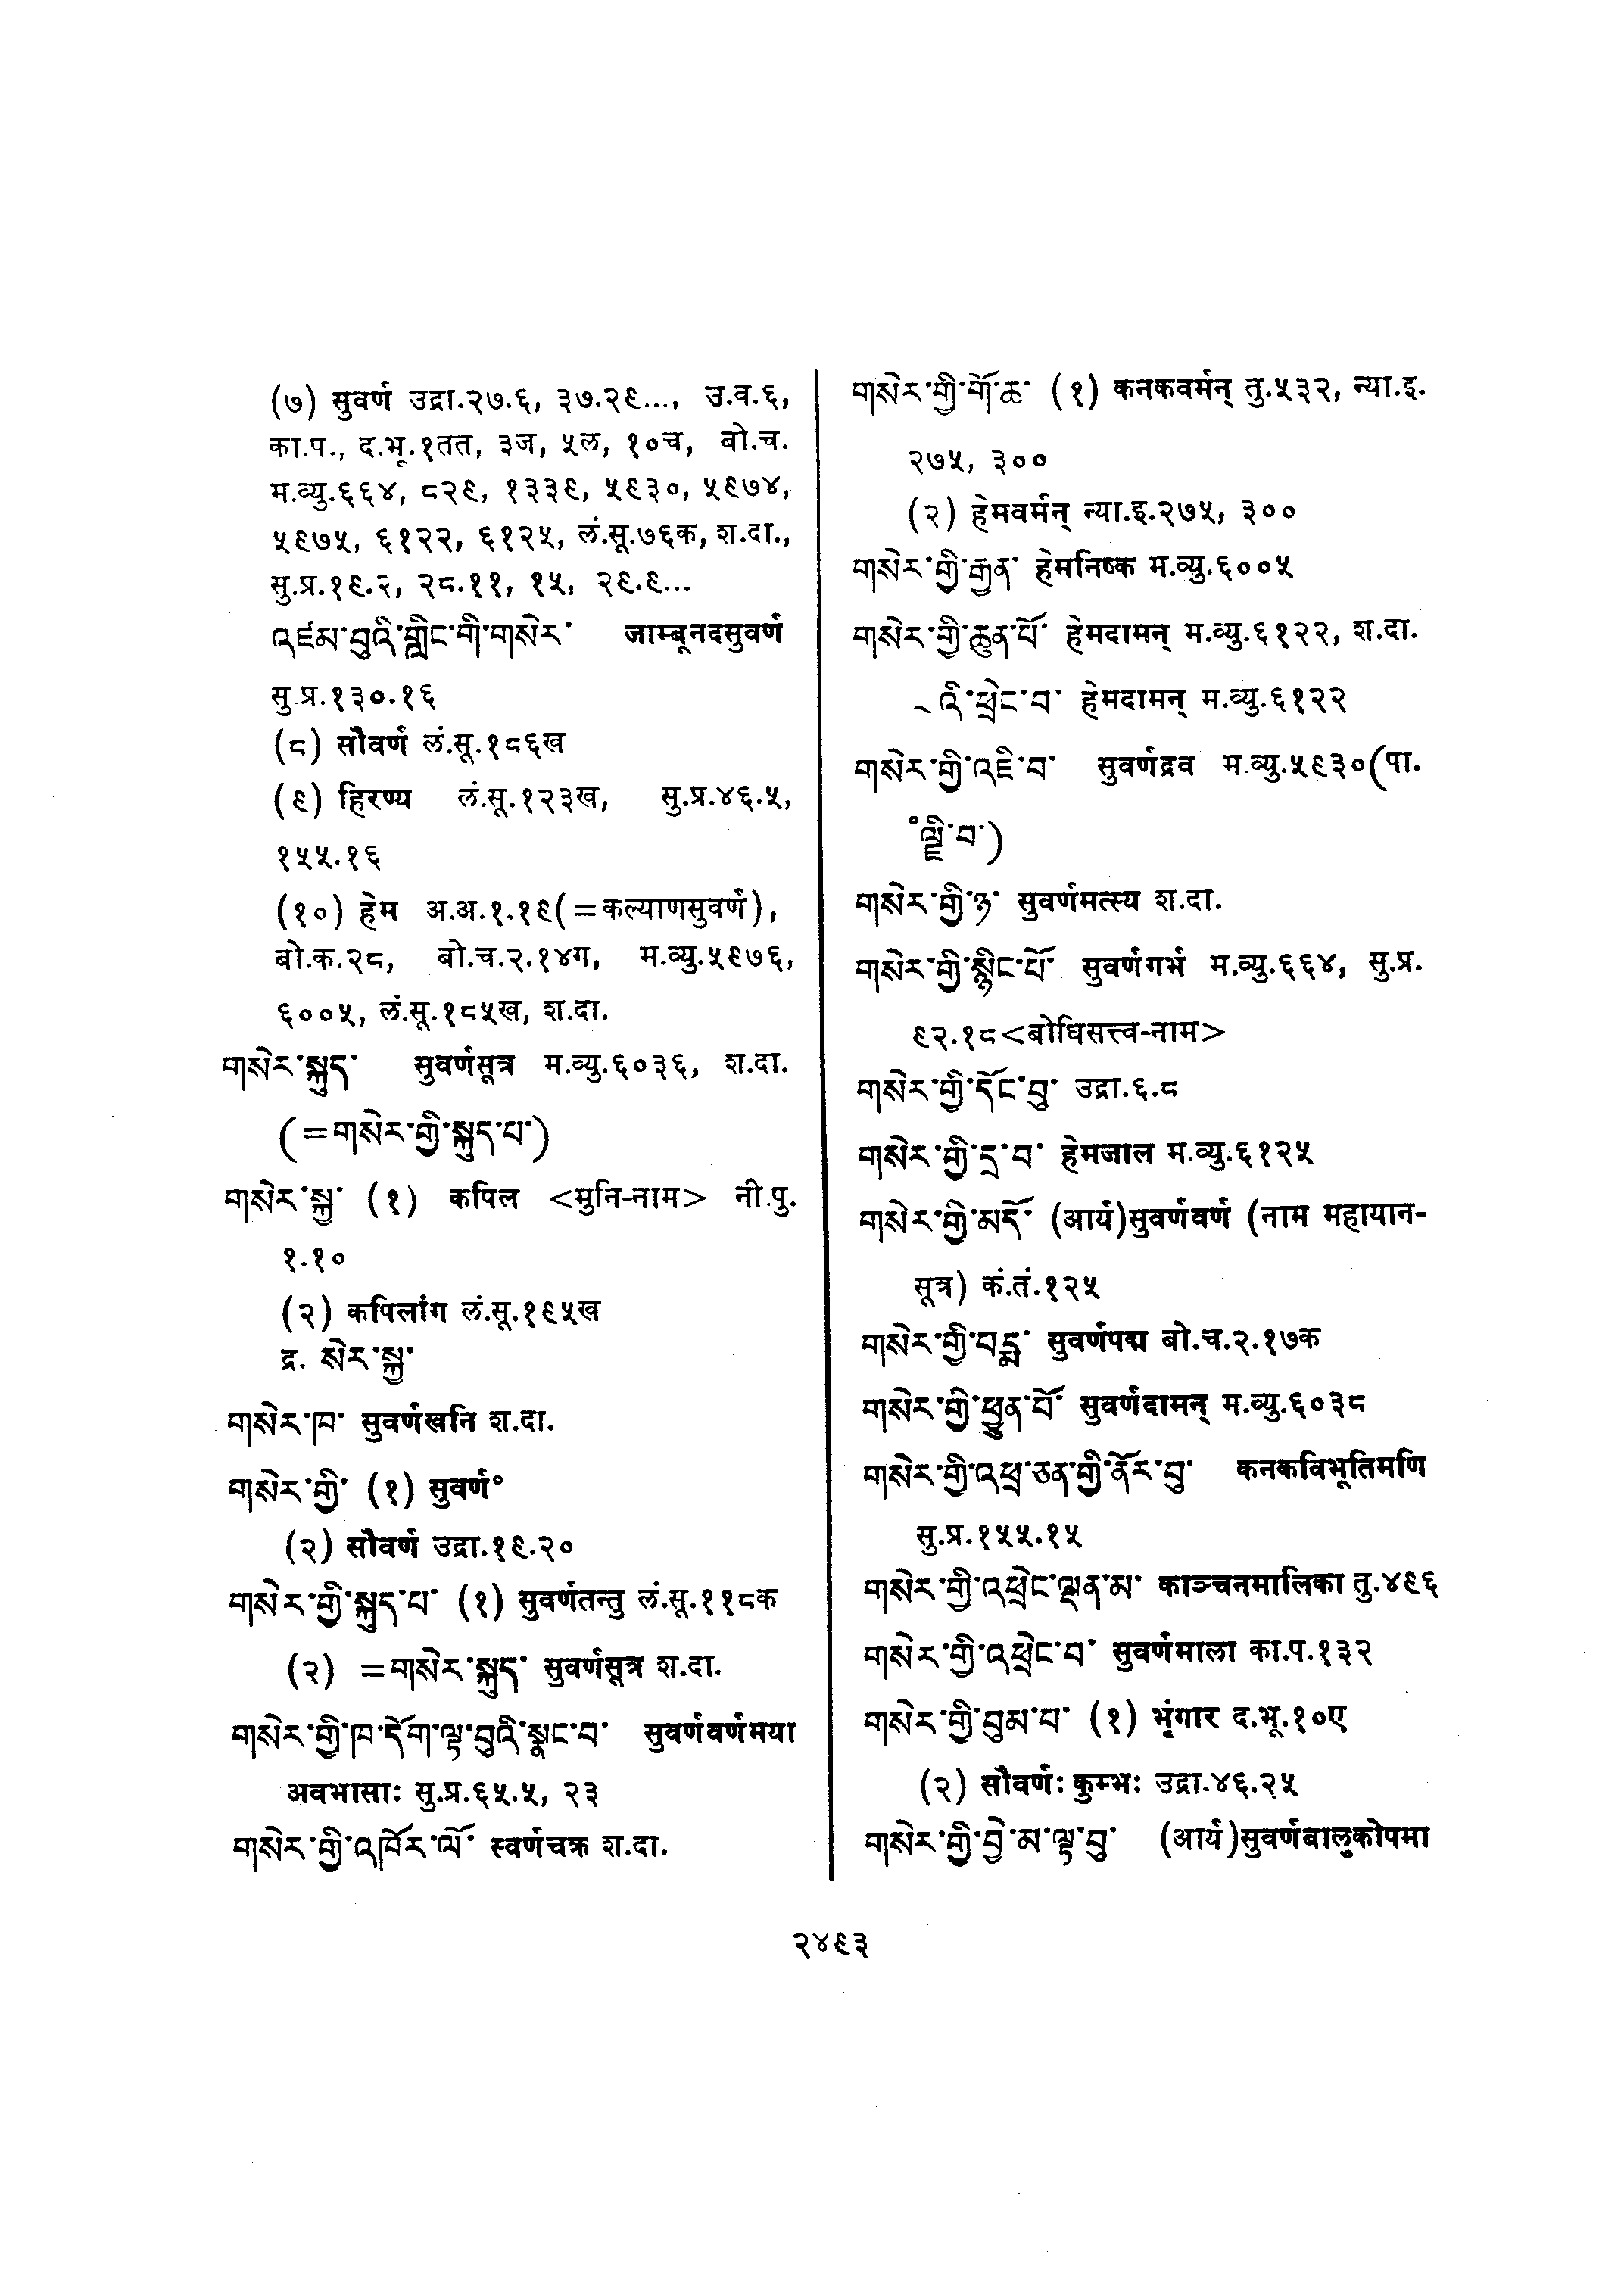 (७) सुवर्ण उद्रा.२७.६, ३७.२९..., उ.व.६,
का.प., द.भू.१तत, ३ज, ५ल, १०च, बो.च.
म.व्यु.६६४, ८२९, १३३९, ५९३०, ५९७४,
५९७५, ६१२२, ६१२५, लं.सू.७६क, श.दा.,
सु.प्र.१९.२, २८.११, १५, २९.९...
འཛམ་བུའི་གླིང་གི་གསེར་ जाम्बूनदसुवर्ण
सु.प्र.१३०.१६
(८) सौवर्ण लं.सू.१८६ख
(९) हिरण्य लं.सू.१२३ख, सु.प्र.४६.५,
१५५.१६
(१०) हेम अ.अ.१.१९(=कल्याणसुवर्ण),
बो.क.२८, बो.च.२.१४ग, म.व्यु.५९७६,
६००५, लं.सू.१८५ख, श.दा.
གསེར་སྐུད་ सुवर्णसूत्र म.व्यु.६०३६, श.दा.
(=གསེར་གྱི་སྐུད་པ་)
གསེར་སྐྱ་ (१) कपिल <मुनि-नाम> नी.पु.
१.१०
(२) कपिलांग लं.सू.१९५ख
द्र. སེར་སྐྱ་
གསེར་ཁ་ सुवर्णखनि श.दा.
གསེར་གྱི་ (१) सुवर्ण°
(२) सौवर्ण उद्रा.१९.२०
གསེར་གྱི་སྐུད་པ་ (१) सुवर्णतन्तु लं.सू.११८क
(२) =གསེར་སྐུད་ सुवर्णसूत्र श.दा.
གསེར་གྱི་ཁ་དོག་ལྟ་བུའི་སྣང་བ་ सुवर्णवर्णमया
अवभासाः सु.प्र.६५.५, २३
གསེར་གྱི་འཁོར་ལོ་ स्वर्णचक्र श.दा.
གསེར་གྱི་གོ་ཆ་ (१) कनकवर्मन् तु.५३२, न्या.इ.
२७५, ३००
(२) हेमवर्मन् न्या.इ.२७५, ३००
གསེར་གྱི་རྒྱན་ हेमनिष्क म.व्यु.६००५
གསེར་གྱི་ཆུན་པོ་ हेमदामन् म.व्यु.६१२२, श.दा.
~འི་ཕྲེང་བ་ हेमदामन् म.व्यु.६१२२
གསེར་གྱི་འཇི་བ་ सुवर्णद्रव म.व्यु.५९३०(पा.
°ལྗི་བ་)
གསེར་གྱི་ཉ་ सुवर्णमत्स्य श.दा.
གསེར་གྱི་སྙིང་པོ་ सुवर्णगर्भ म.व्यु.६६४, सु.प्र.
९२.१८<बोधिसत्त्व-नाम>
གསེར་གྱི་དོང་བུ་ उद्रा.६.८
གསེར་གྱི་དྲ་བ་ हेमजाल म.व्यु.६१२५
གསེར་གྱི་མདོ་ (आर्य)सुवर्णवर्ण (नाम महायान-
सूत्र) कं.तं.१२५
གསེར་གྱི་པདྨ་ सुवर्णपद्म बो.च.२.१७क
གསེར་གྱི་ཕྱུན་པོ་ सुवर्णदामन् म.व्यु.६०३८
གསེར་གྱི་འཕྲ་ཅན་གྱི་ནོར་བུ་ कनकविभूतिमणि
सु.प्र.१५५.१५
གསེར་གྱི་འཕྲེང་ལྡན་མ་ काञ्चनमालिका तु.४९६
གསེར་གྱི་འཕྲེང་བ་ सुवर्णमाला का.प.१३२
གསེར་གྱི་བུམ་པ་ (१) भृंगार द.भू.१०ए
(२) सौवर्णः कुम्भः उद्रा.४६.२५
གསེར་གྱི་བྱེ་མ་ལྟ་བུ་ (आर्य)सुवर्णबालुकोपमा
२४९३